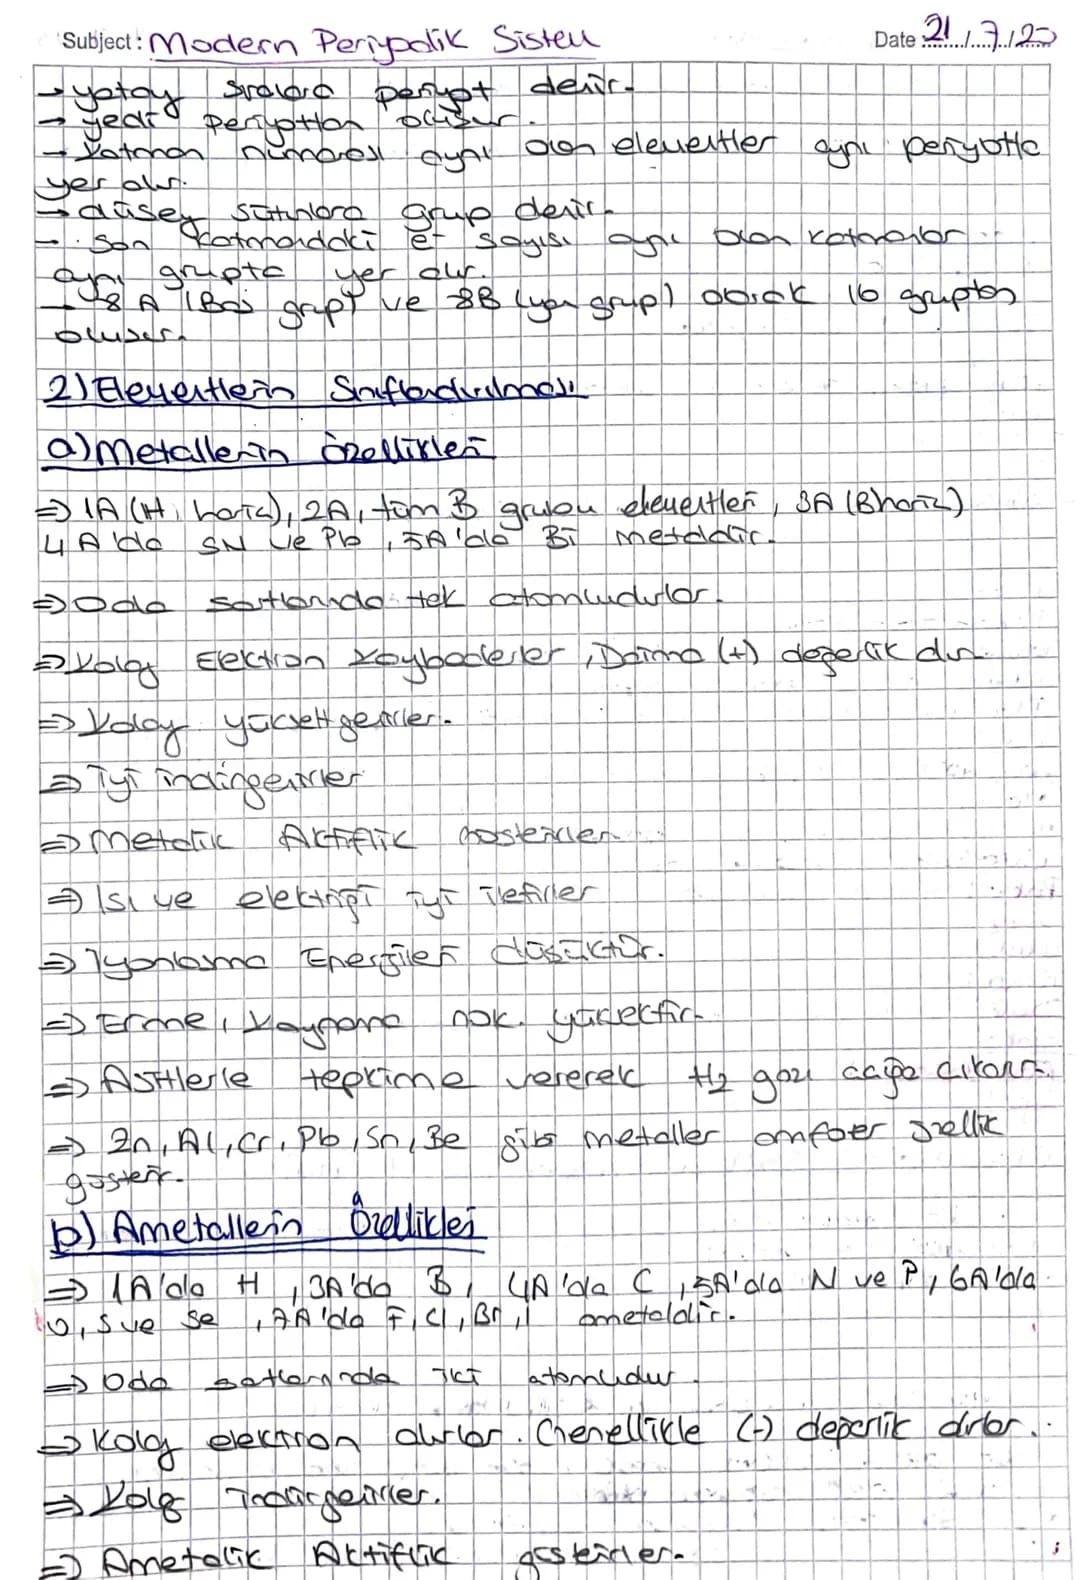 Subject: Modern Periyodik Sistem
Date 21/7/20
→ yatay sıralara periyot denir.
→ yedi periyottan oluşur.
→ Katman numarası aynı olan elementler aynı periyotta
yer alır.
→ düşey sütunlara grup denir.
→ Son katmandaki e- sayısı aynı olan katmanlar
aynı grupta yer alır.
→ 8A (Baş grup) ve 8B (yan grup) olarak 16 gruptan
oluşur.
2) Elementlerin Sınıflandırılması
a) Metallerin Özellikleri
⇒ 1A (H, hariç), 2A, tüm B grubu elementleri, 3A (B hariç)
4A'da SN ve Pb, 5A'da Bi metaldir.
⇒ Oda şartlarında tek atomludurlar.
⇒ Kolay Elektron kaybederler, Daima (+) değerlik alır.
⇒ Kolay yükseltgenirler.
⇒ İyi indirgenirler
⇒ Metalik Aktiflik Gösterirler.
⇒ Isı ve elektriği iyi iletirler
⇒ İyonlaşma Enerjileri düşüktür.
⇒ Erime, Kaynama nok. yüksektir.
⇒ Asitlerle tepkime vererek H2 gazı açığa çıkarır.
⇒ Zn, Al, Cr, Pb, Sn, Be gibi metaller amfoter özellik
gösterir.
b) Ametallerin Özellikleri
⇒ 1A'da H, 3A'da B, 4A'da C, 5A'da N ve P, 6A'da
O, S ve Se, 7A'da F, Cl, Br, I ametaldir.
⇒ Oda şartlarında iki atomludur.
⇒ Kolay elektron alırlar. Genellikle (-) değerlik alırlar.
⇒ Kolay indirgenirler.
⇒ Ametalik Aktiflik gösterirler.